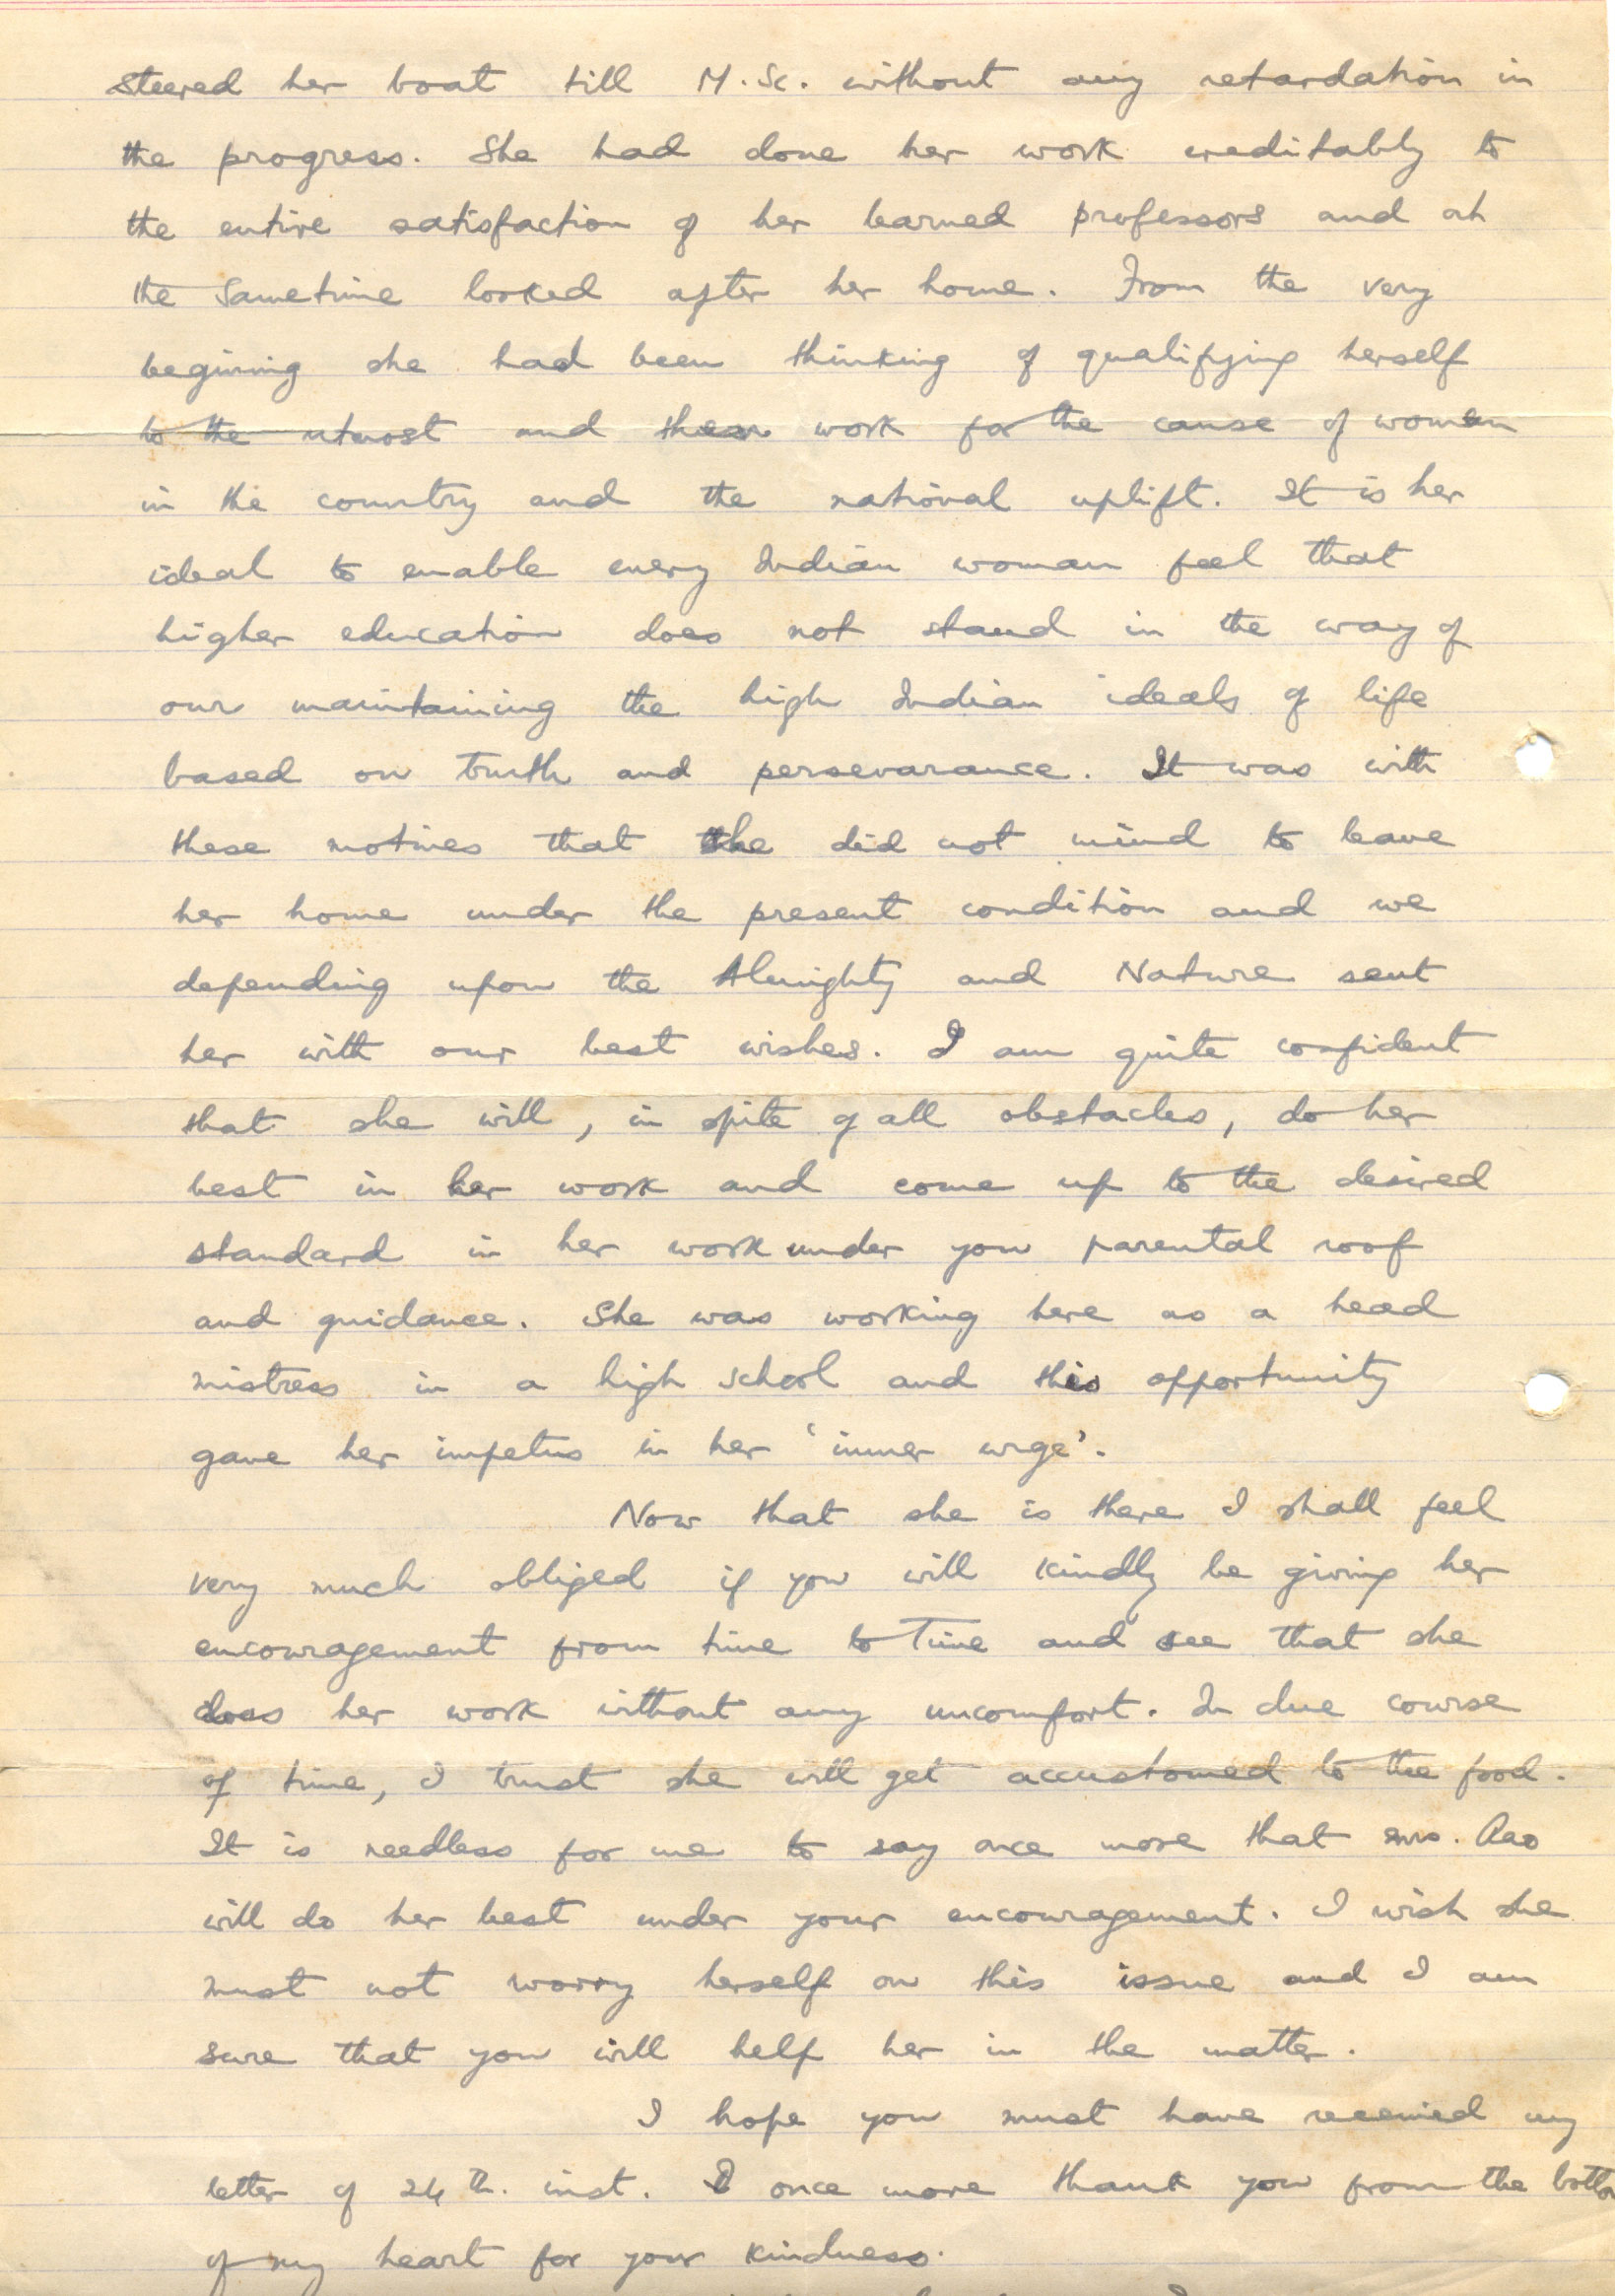 steered her boat till M.Sc. without any retardation in
the progress. She had done her work creditably to
the entire satisfaction of her learned professors and at
the sametime looked after her home. From the very
begining she had been thinking of qualifying herself
to the utmost and then work for the cause of women
in the country and the national uplift. It is her
ideal to enable every Indian woman feel that
higher education does not stand in the way of
our maintaining the high Indian ideals of life
based on truth and persevarance. It was with
these motives that she did not mind to leave
her home under the present condition and we
depending upon the Almighty and Nature sent
her with our best wishes. I am quite confident
that she will, in spite of all obstacles, do her
best in her work and come up to the desired
standard in her work under your parental roof
and guidance. She was working here as a head
mistress in a high school and this opportunity
gave her impetus in her 'inner urge'.
Now that she is there I shall feel
very much obliged if you will kindly be giving her
encouragement from time to Time and see that she
does her work without any uncomfort. In due course
of time, I trust she will get accustomed to the food.
It is needless for me to say once more that Mrs. Rao
will do her best under your encouragement. I wish she
must not worry herself on this issue and I am
sure that you will help her in the matter.
I hope you must have received my
letter of 24th. inst. I once more thank you from the botto
of my heart for your kindness.